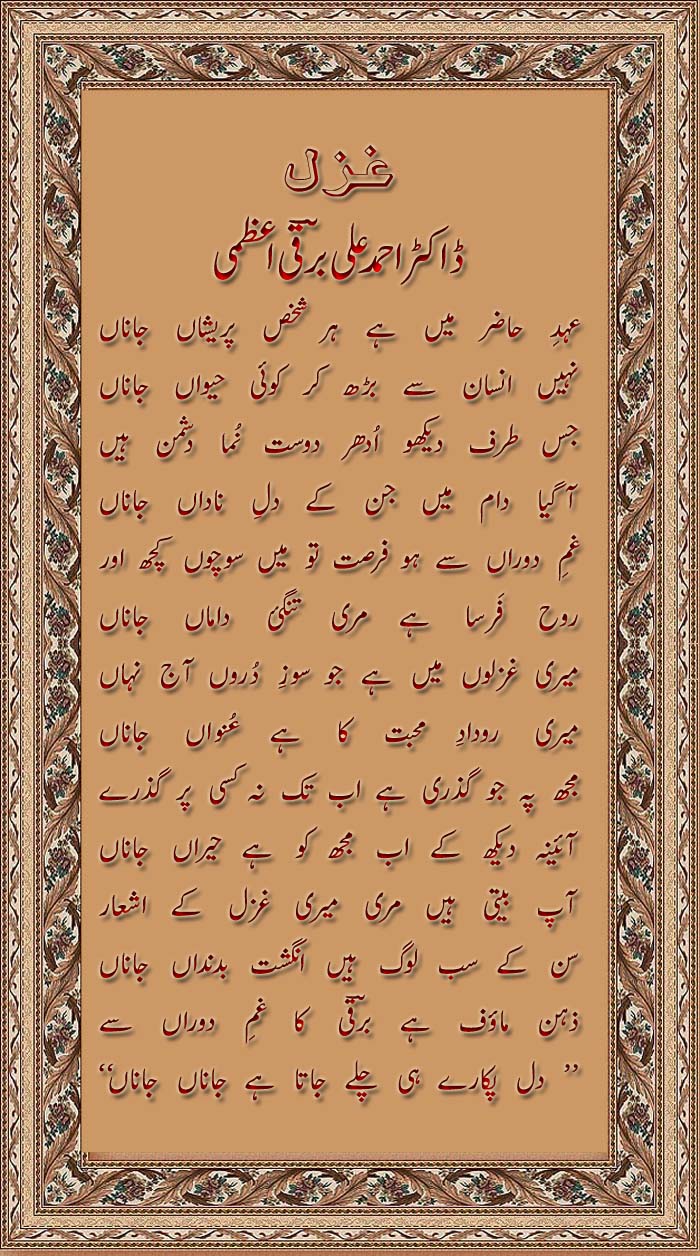 غزل
ڈاکٹر احمد علی برقی اعظمی
عہدِ حاضر میں ہے ہر شخص پریشاں جاناں
نہیں انسان سے بڑھ کر کوئی حیواں جاناں
جس طرف دیکھو اُدھر دوست نُما دشمن ہیں
آ گیا دام میں جن کے دلِ ناداں جاناں
غمِ دوراں سے ہو فرصت تو میں سوچوں کچھ اور
روح فَرسا ہے مری تنگئ داماں جاناں
میری غزلوں میں ہے جو سوزِ دُروں آج نہاں
میری رودادِ محبت کا ہے عُنواں جاناں
مجھ پہ جو گذری ہے اب تک نہ کسی پر گذرے
آئینہ دیکھ کے اب مجھ کو ہے حیراں جاناں
آپ بیتی ہیں مری میری غزل کے اشعار
سن کے سب لوگ ہیں انگشت بدنداں جاناں
ذہن ماؤف ہے برقیؔ کا غمِ دوراں سے
’’ دل پکارے ہی چلے جاتا ہے جاناں جاناں‘‘